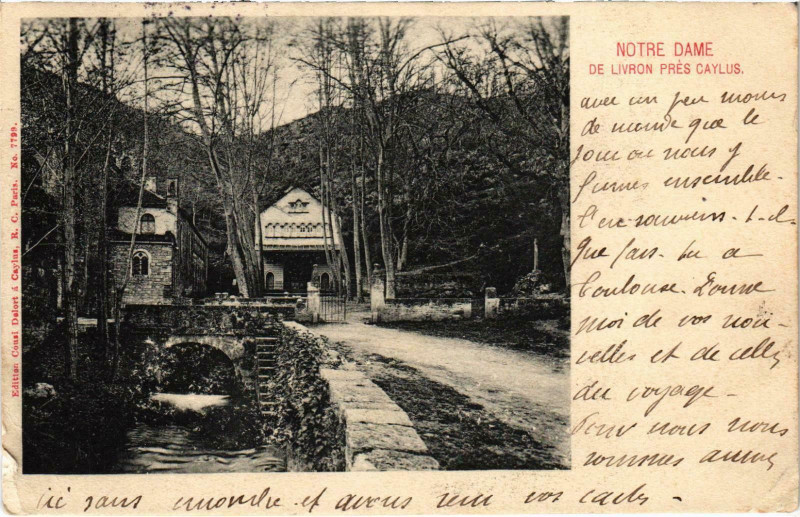 NOTRE DAME
DE LIVRON PRÉS CAYLUS.
avec un peu moins
de monde que le
jour où nous y
fumes ensemble.
T'en souviens-t-il
Que fais-tu a
Toulouse. Donne
moi de vos nou-
velles et de celles
du voyage.
Pour nous nous
sommes arrivés
ici sans encombre et avons reçu vos cartes.
Edition Cousi Delort à Caylus, R. C. Paris. No. 7799.